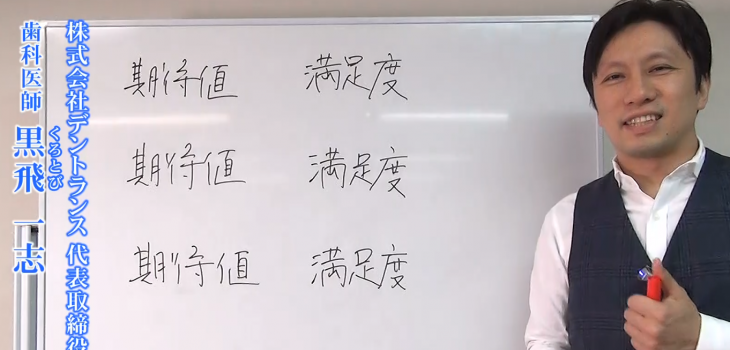 株式会社デントランス 代表取締役
歯科医師 黒飛 一志
くろとび
期待値 満足度
期待値 満足度
期待値 満足度